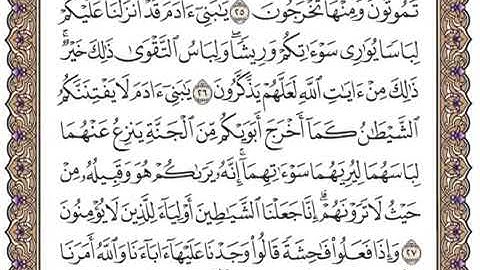 تَمُوتُونَ وَمِنْهَا تُخْرَجُونَ ٢٥ يَٰبَنِىٓ ءَادَمَ قَدْ أَنزَلْنَا عَلَيْكُمْ
لِبَاسًا يُوَٰرِى سَوْءَٰتِكُمْ وَرِيشًا ۖ وَلِبَاسُ ٱلتَّقْوَىٰ ذَٰلِكَ خَيْرٌ ۚ
ذَٰلِكَ مِنْ ءَايَٰتِ ٱللَّهِ لَعَلَّهُمْ يَذَّكَّرُونَ ٢٦ يَٰبَنِىٓ ءَادَمَ لَا يَفْتِنَنَّكُمُ
ٱلشَّيْطَٰنُ كَمَآ أَخْرَجَ أَبَوَيْكُم مِّنَ ٱلْجَنَّةِ يَنزِعُ عَنْهُمَا
لِبَاسَهُمَا لِيُرِيَهُمَا سَوْءَٰتِهِمَآ ۗ إِنَّهُۥ يَرَىٰكُمْ هُوَ وَقَبِيلُهُۥ مِنْ
حَيْثُ لَا تَرَوْنَهُمْ ۗ إِنَّا جَعَلْنَا ٱلشَّيَٰطِينَ أَوْلِيَآءَ لِلَّذِينَ لَا يُؤْمِنُونَ
٢٧ وَإِذَا فَعَلُوا۟ فَٰحِشَةً قَالُوا۟ وَجَدْنَا عَلَيْهَآ ءَابَآءَنَا وَٱللَّهُ أَمَرَنَا